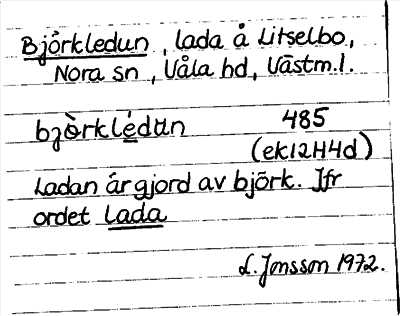 Björkledun, lada å Litselbo,
Nora sn, Våla hd, Västm.l.
bjò̀rklédun 485
(ek12H4d)
Ladan är gjord av björk. Jfr
ordet lada
L. Jonsson 1972.